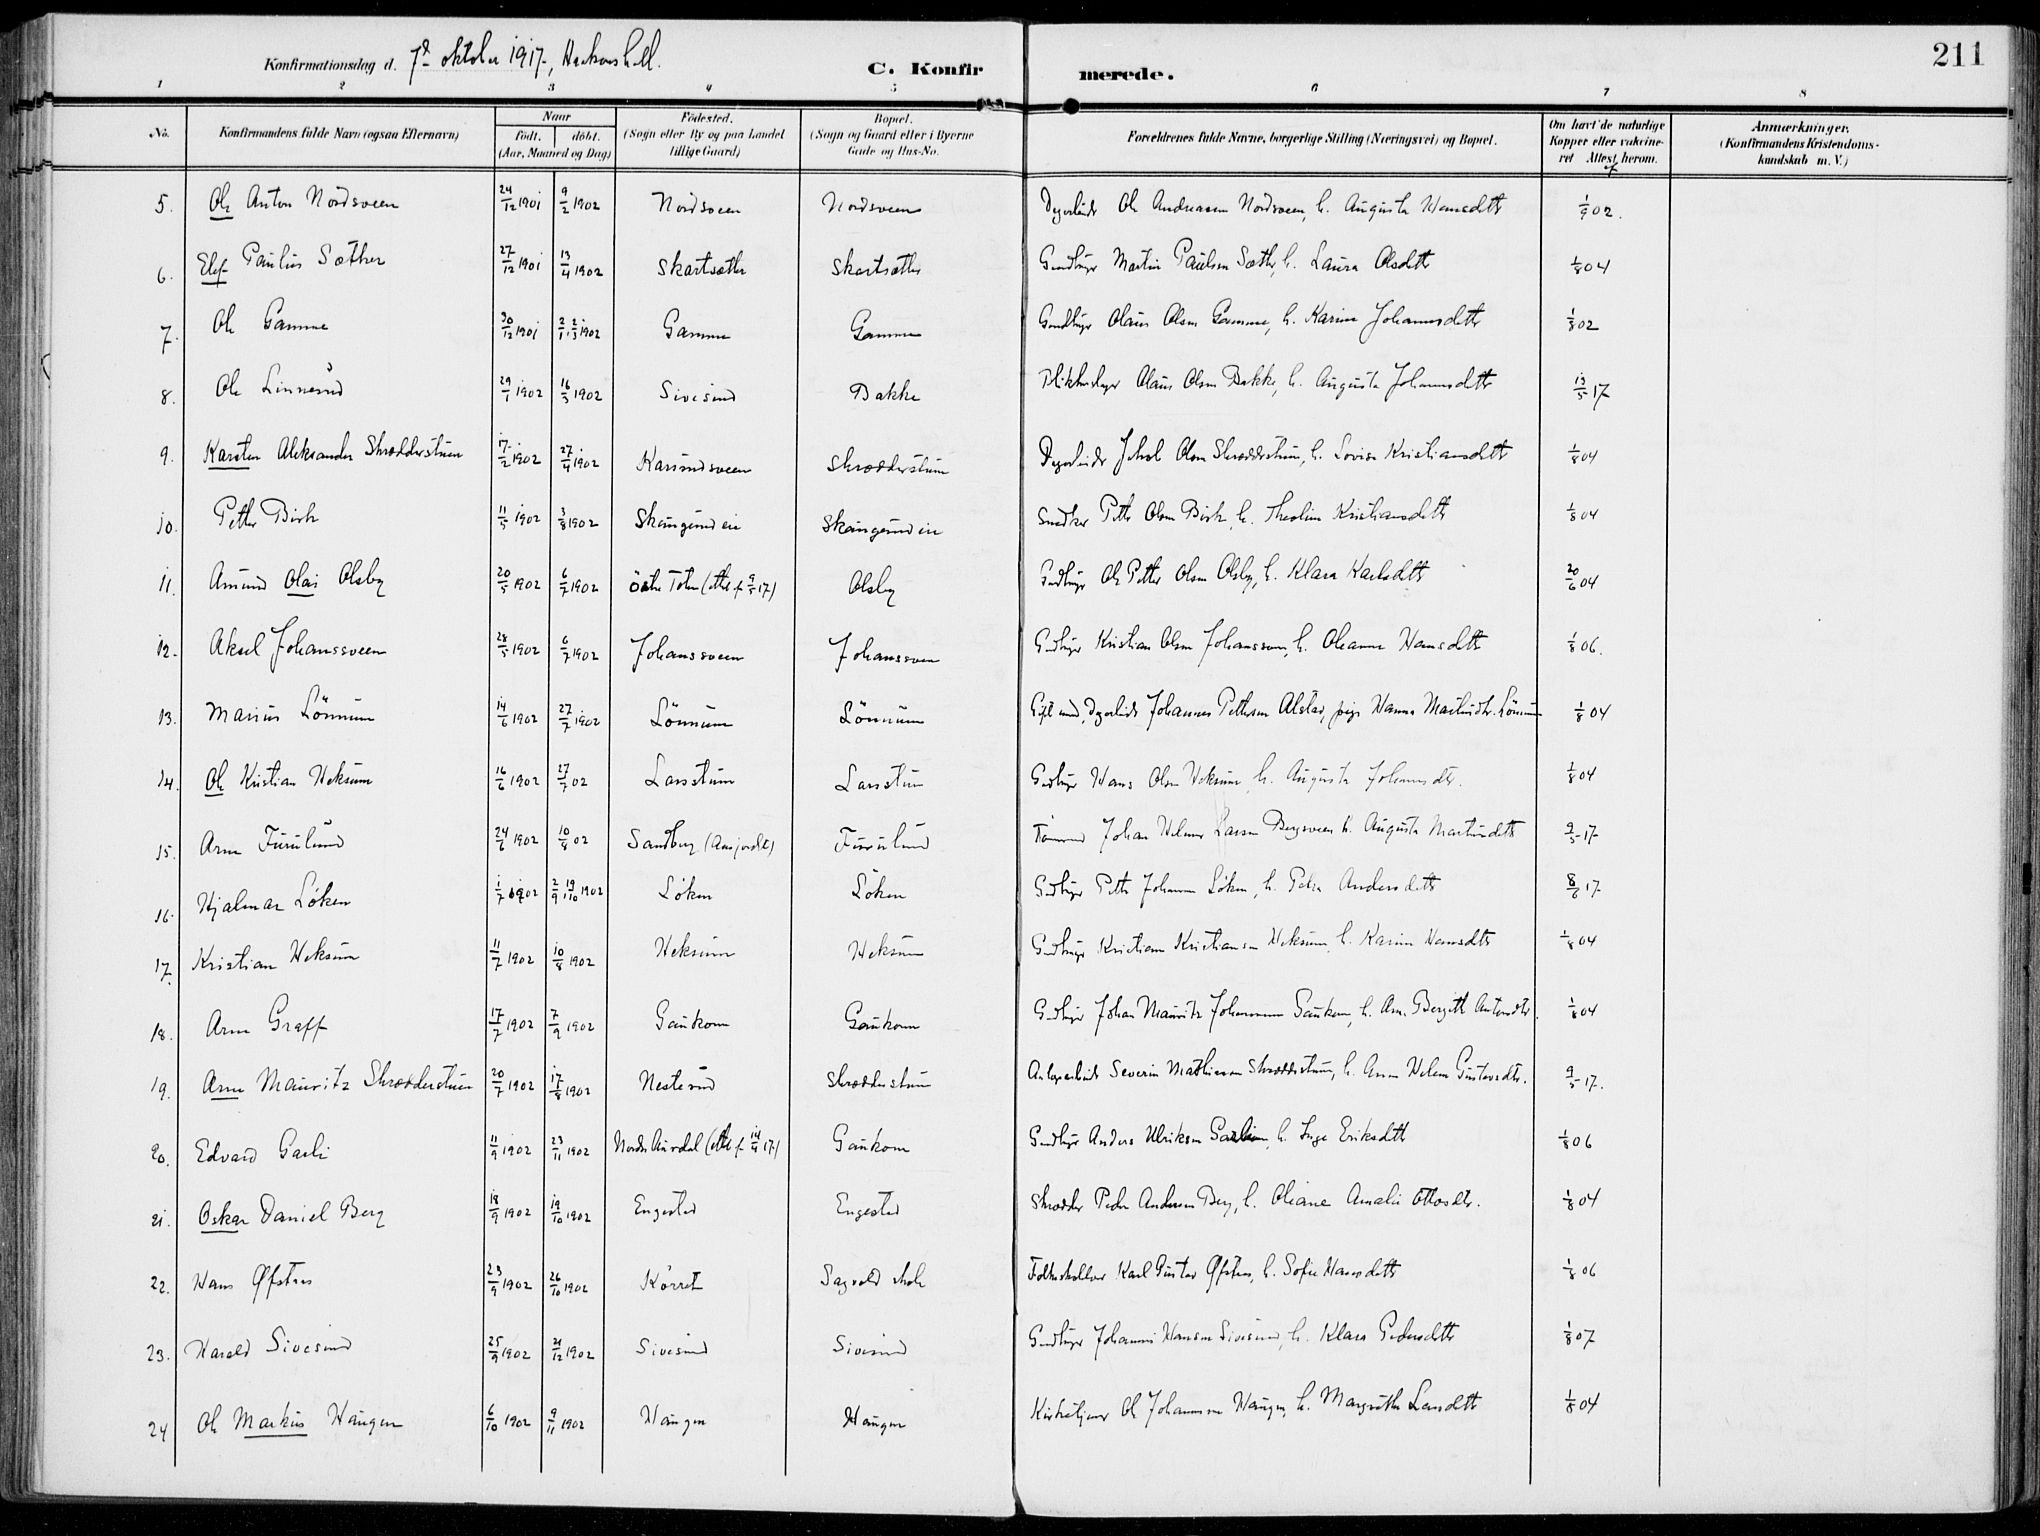 Konfirmationsdag d. 7de oktober 1917,
C. Konfirmerede.
211
1 2 3 4 5 6 7 8
No. Konfirmandens fulde Navn (ogsaa Efternavn) Naar født. døbt. (Aar, Maaned og Dag) Fødested. (Sogn eller By og paa Landet tillige Gaard) Bopæl. (Sogn og Gaard eller i Byerne Gade og Hus-No. Forældrenes fulde Navne, borgerlige Stilling (Næringsvei) og Bopæl. Om havt de naturlige Kopper eller vakcineret Attest herom. Anmærkninger. (Konfirmandens Kristendomskundskab m. V.)
5. Ole Anton Nordsveen 24/12 1901 9/2 1902 Nordsveen Nordsveen Ole Andreasen Nordsveen, h. Augusta Hansdtr 1/9 02.
6. Elef Paulius Sæther 27/12 1901 13/4 1902 Skartsæther Skartsæther Grdbruger Martin Paulsen Sæther, h. Laura Olsdtr 1/8 04
7. Ole Gamme 30/12 1901 2/1, 2/3 1902 Gamme Gamme Grdbruger Olaus Olsen Gamme, h. Karine Johannesdtr 1/8 02
8. Ole Linnerud 29/1 1902 16/3 1902 Sivesind Bakke Olaus Olsen Bakke, h. Augusta Johannesdtr 13/5 17
9. Karsten Aleksander Skrædderstuen 17/2 1902 27/4 1902 Karsrudsveen Skrædderstuen Olsen Skrædderstuen, h. Lovise Kristiansdtr 1/8 04
10. Petter Birk 11/5 1902 3/8 1902 Skaugerud eie Skaugerud eie Snedker Petter Olsen Birk, h. Theoline Kristiansdtr 1/8 04
11. Amund Olai Olsby 20/5 1902 6/7 1902 Østre Toten (att. f. 9/5 17) Olsby Grdbruger Ole Petter Olsen Olsby, h. Klara Karlsdtr 20/6 04
12. Aksel Johanssveen 28/5 1902 6/7 1902 Johanssveen Johanssveen Grdbruger Kristian Olsen Johanssveen, h. Oleanna Hansdtr 1/8 06.
13. Marius Lönnum 14/6 1902 27/7 1902 Lönnum Lönnum Gift mand, Johannes Pettersen Alstad, pige Hanna Lönnum 1/8 04
14. Ole Kristian Heksum 16/6 1902 27/7 02 Larsstuen Larsstuen Grdbruger Hans Olsen Heksum, h. Augusta Johannesdtr. 1/8 04
15. Arne Furulund 24/6 1902 10/8 02 Sandberg Furulund Johan Larsen Bergsveen h. Augusta Martinsdtr 9/5 17
16. Hjalmar Løken 1/7 1902 2/9, 19/10 1902 Løken Løken Grdbruger Petter Johannesen Løken, h. Petra Andersdtr 8/6 17
17. Kristian Heksum 11/7 1902 10/8 1902 Heksum Heksum Grdbruger Kristian Kristiansen Heksum, h. Karine Hansdtr 1/8 04
18. Arne Graff 17/7 1902 7/9 1902 Gaukom Gaukom Grdbruger Johan Mauritz Johannesen Gaukom, h. Bergitte Antonsdtr. 1/8 04
19. Arne Mauritz Skrædderstuen 20/7 1902 17/8 1902 Nesterud Skrædderstuen Severin Mathiesen Skrædderstuen, h. Anne Helene Gustavsdtr. 9/5 17.
20. Edvard Garli 11/9 1902 23/11 1902 Nordre Aurdal (att. f. 14/4 17) Gaukom Grdbruger Anders Ulriksen Garlien, h. Inge Eriksdtr 1/8 06
21. Oskar Daniel Berg 18/9 1902 19/10 1902 Engestad Engestad Skrædder Peder Andersen Berg, h. Oliane Amalie Ottosdtr. 1/8 04
22. Hans Øfstaas 23/9 1902 26/10 1902 Kórret Sagvold skole Karl Gustav Øfstaas, h. Sofie Hansdtr 1/8 06
23. Harald Sivesind 25/9 1902 21/12 1902 Sivesind Sivesind Grdbruger Johannes Hansen Sivesind, h. Klara Pedersdtr 1/8 07
24 Ole Markus Haugen 6/10 1902 9/11 1902 Haugen Haugen Kirketjener Ole Johannesen Haugen, h. Margrethe Larsdtr 1/8 04